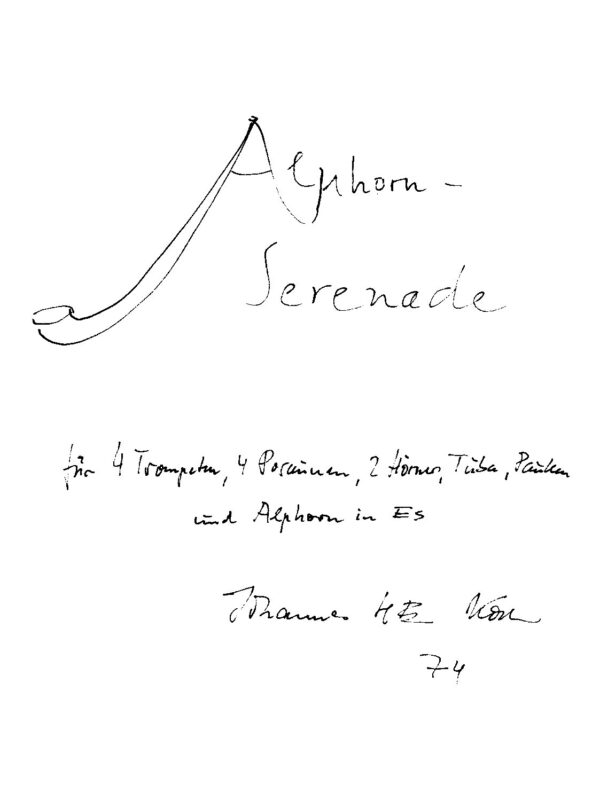 Alphorn-
Serenade
für 4 Trompeten, 4 Posaunen, 2 Hörner, Tuba, Pauken
und Alphorn in Es
Johannes H E
74